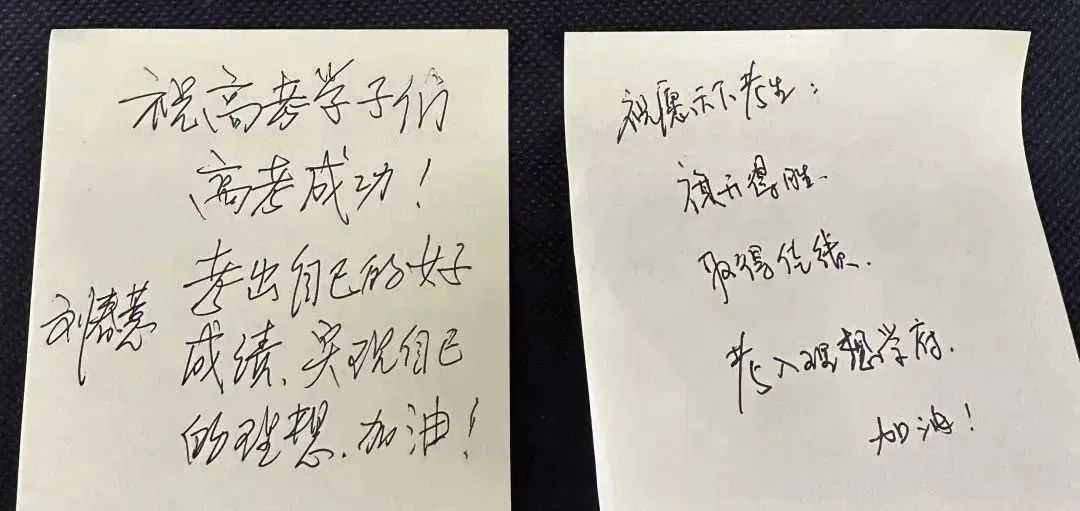 祝高考学子们
高考成功！
考出自己的好
成绩、实现自己
的理想.加油！
刘春
祝愿天下考生：
旗开得胜.
取得佳绩.
考入理想学府.
加油！